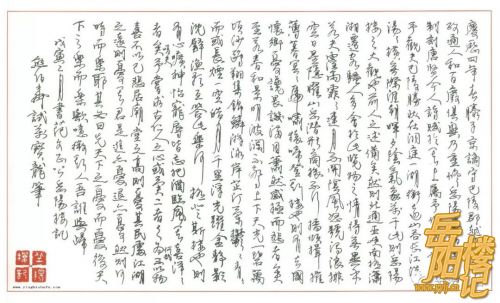 慶歷四年春滕子京謫守巴陵郡越明年
政通人和百廢俱興乃重修岳陽樓增其舊
制刻唐賢今人詩賦於其上屬予作文以記之
予觀夫巴陵勝狀在洞庭一湖銜遠山吞長江浩浩湯
湯橫無際涯朝暉夕陰氣象萬千此則岳陽
樓之大觀也前人之述備矣然則北通巫峽南極瀟
湘遷客騷人多會於此覽物之情得無異乎
若夫霪雨霏霏連月不開陰風怒號濁浪排
空日星隱曜山岳潛形商旅不行檣傾楫摧
薄暮冥冥虎嘯猿啼登斯樓也則有去國
懷鄉憂讒畏譏滿目蕭然感極而悲者矣
至若春和景明波瀾不驚上下天光一碧萬
頃沙鷗翔集錦鱗游泳岸芷汀蘭鬱鬱青青
而或長煙一空皓月千里浮光躍金靜影
沉璧漁歌互答此樂何極登斯樓也則
有心曠神怡寵辱皆忘把酒臨風其喜洋洋
者矣嗟夫予嘗求古仁人之心或異二者之為何哉不以物
喜不以己悲居廟堂之高則憂其民處江湖
之遠則憂其君是進亦憂退亦憂然則何
時而樂耶其必曰先天下之憂而憂後天
下之樂而樂歟噫微斯人吾誰與歸
月書范文正公岳陽樓記
岳阳
楼记